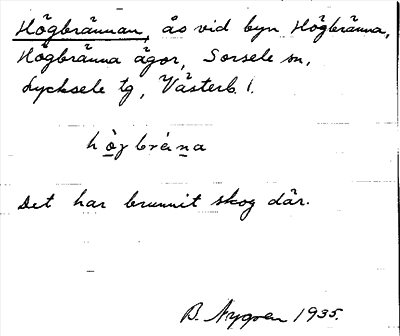 Högbrännan, ås vid byn Högbränna,
Högbränna ägor, Sorsele sn,
Lycksele tg, Västerb. l.
hò̲gbréna̲
Det har brunnit skog där.
B. Nygren 1935.